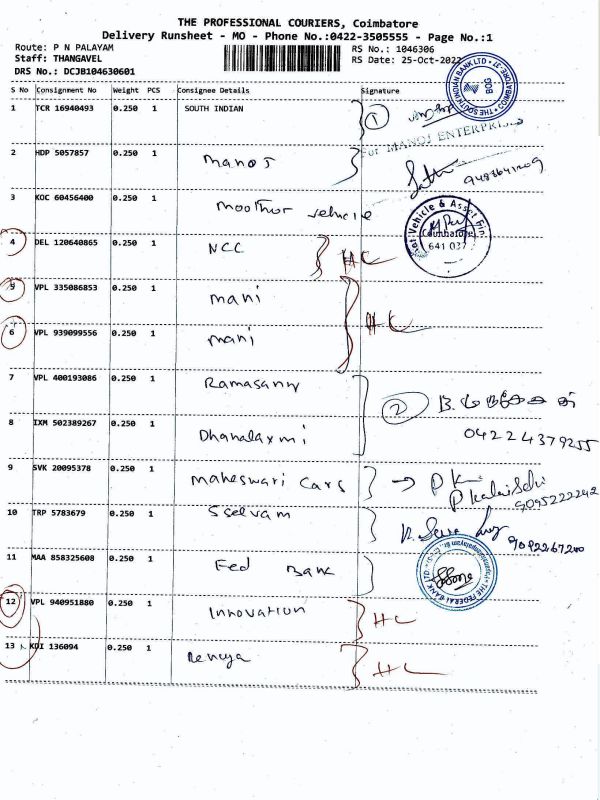 THE PROFESSIONAL COURIERS, Coimbatore
Delivery Runsheet - MO - Phone No.:0422-3505555 - Page No.:1
Route: P N PALAYAM
RS No.: 1046306
Staff: THANGAVEL
RS Date: 25-Oct-2022
DRS No.: DCJB104630601
S No Consignment No Weight PCS Consignee Details Signature
1 TCR 16940493 0.250 1 SOUTH INDIAN 1
For MANOJ ENTERPRISES
2 HDP 5057857 0.250 1 Manoj
3 KOC 60456400 0.250 1 Moothor vehicle
Coimbatore
641 037
4 DEL 120640865 0.250 1 NCC HC
5 VPL 335086853 0.250 1 mani
6 VPL 939099556 0.250 1 mani HC
7 VPL 400193086 0.250 1 Ramasamy
2 B.
8 IXM 502389267 0.250 1 Dhanalaxmi 04224379255
9 SVK 20095378 0.250 1 Maheswari Cars → P K
9095222242
10 TRP 5783679 0.250 1 Sselvam
9092267200
11 MAA 858325608 0.250 1 Fed Bank
THE FEDERAL BANK LTD
12 VPL 940951880 0.250 1 Innovation HC
13 KDI 136094 0.250 1 Renuya HC